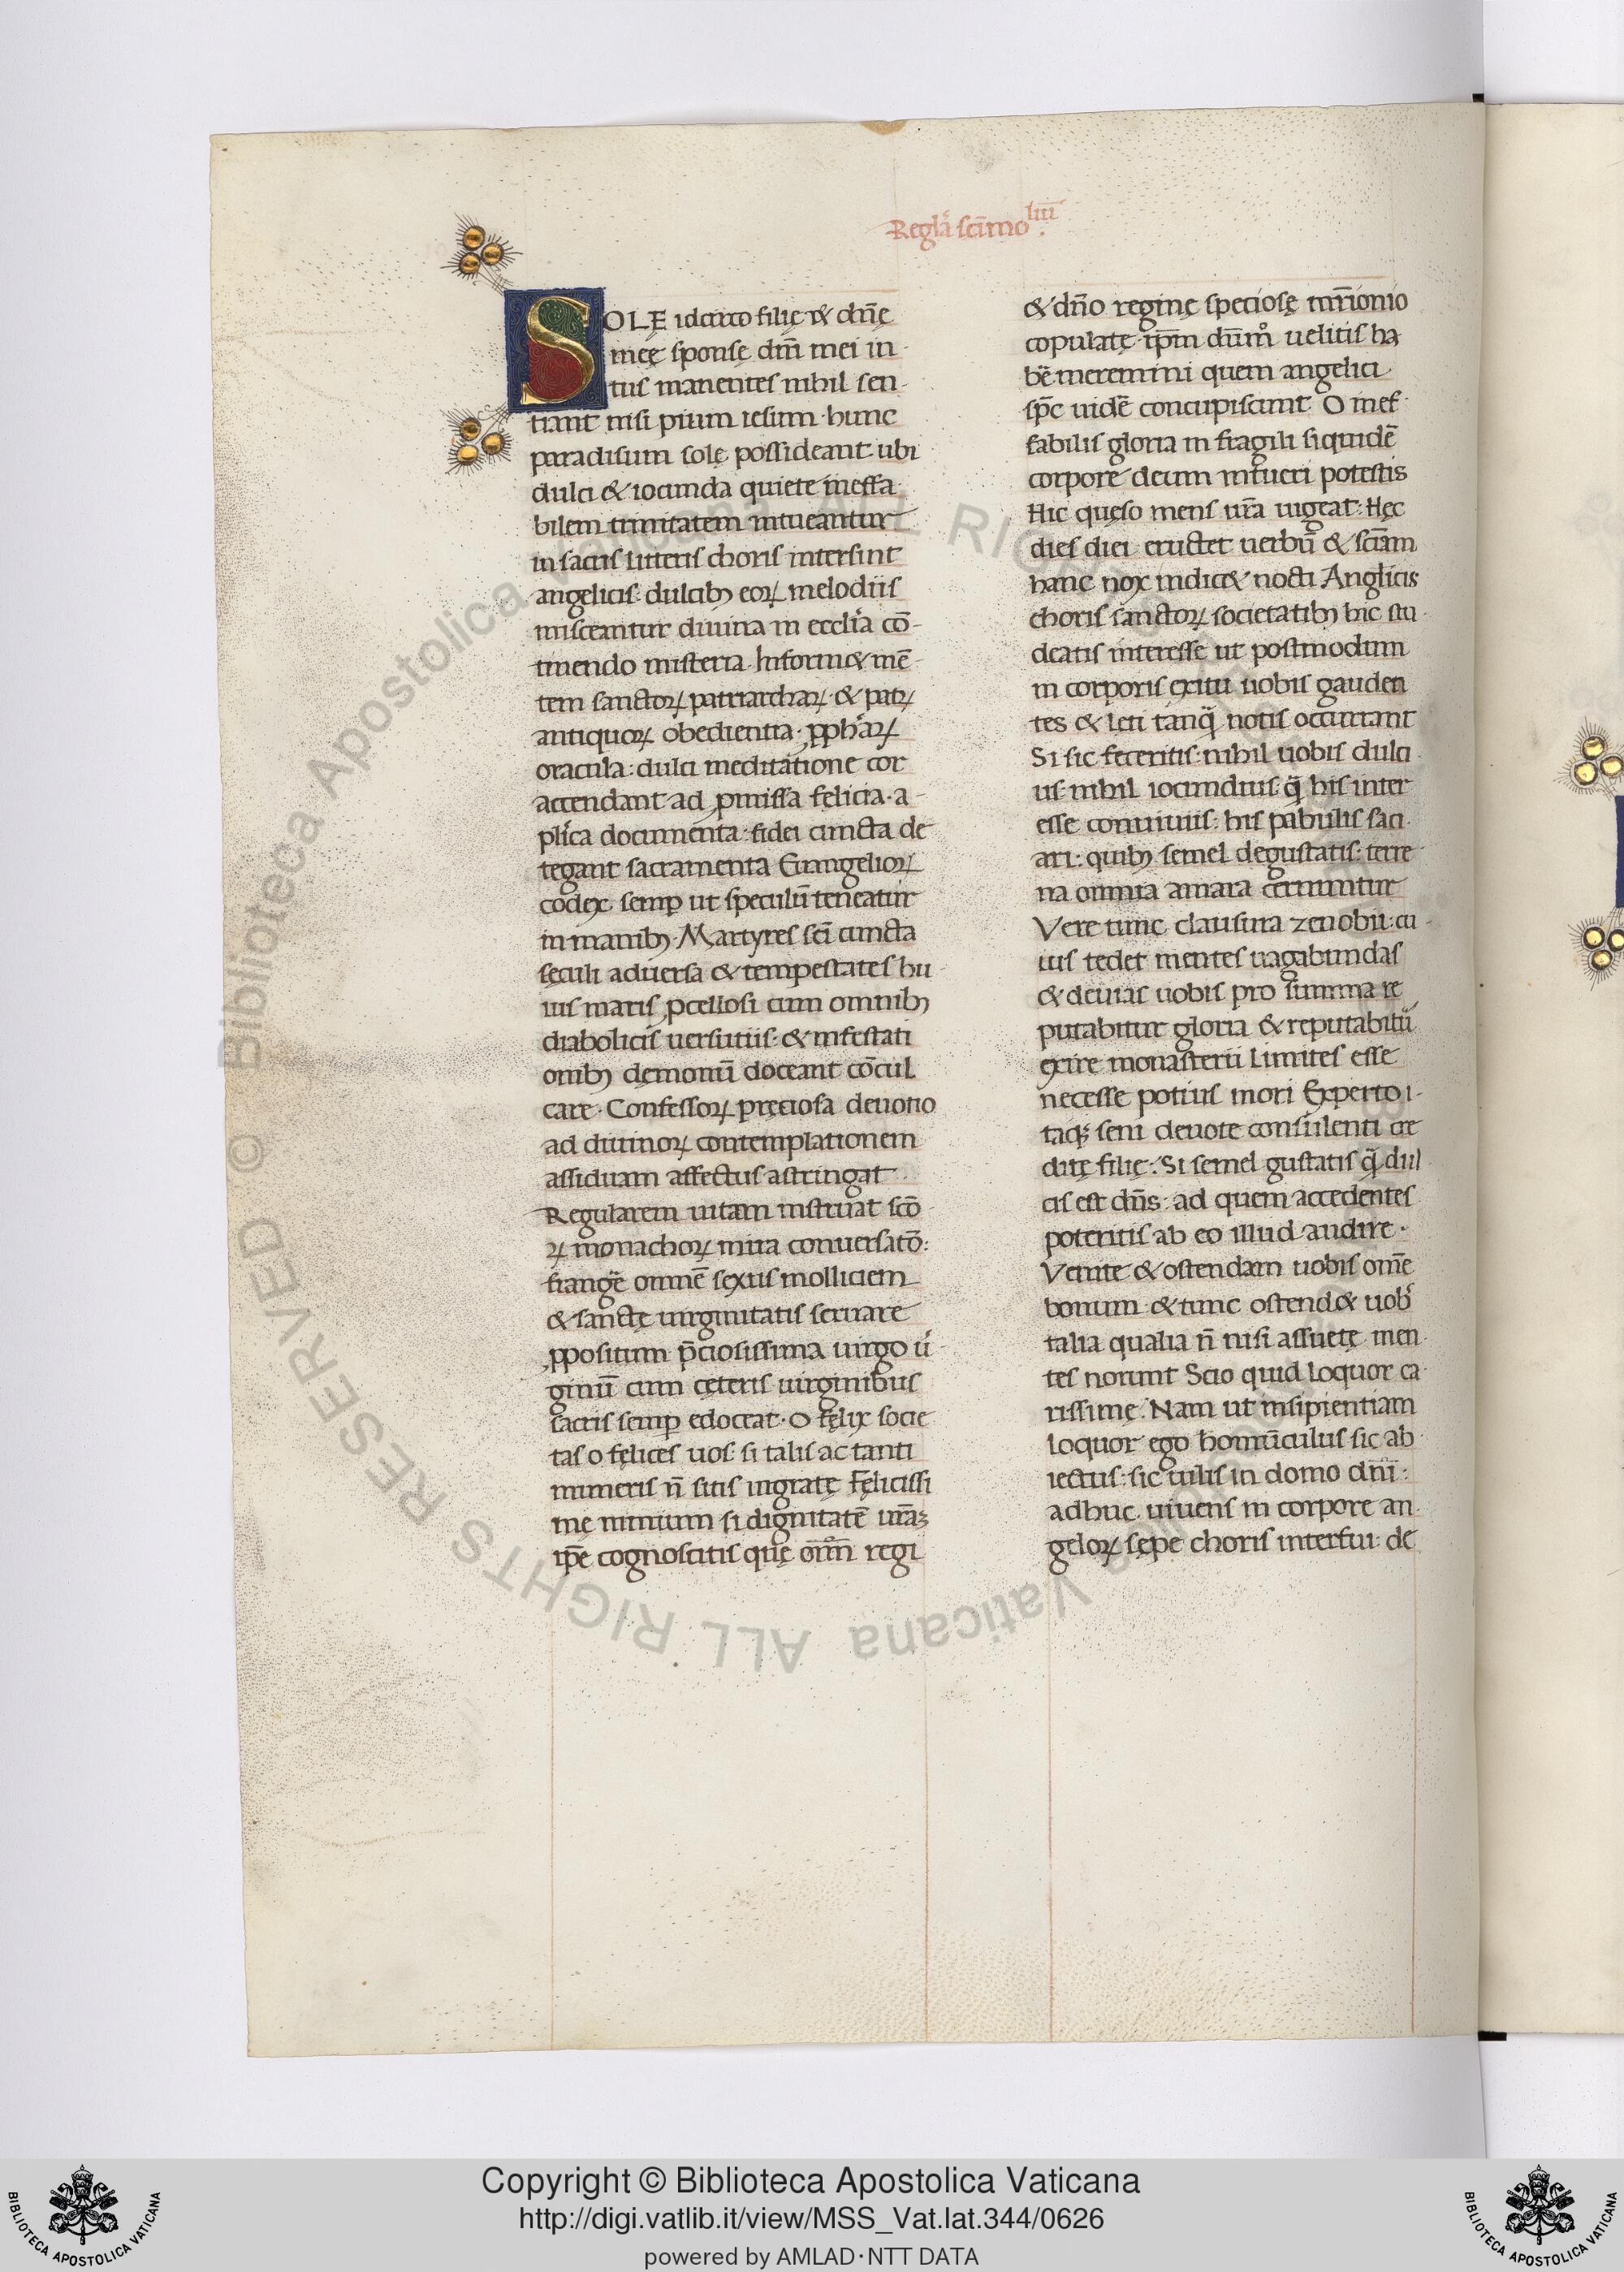 Reglã scimo liii.
SOLĘ idcirco filię & dn̄e
meę sponsę dn̄i mei in
tus manentes nihil sen-
tiant nisi pium iesum· hunc
paradisum solę possideant ubi
dulci & iocunda quiete ineffa-
bilem trinitatem intueantur
in sacris litteris choris intersint
angelicis: dulcibꝫ eoꝝ melodiis
misceantur diuina in ecclia cō-
tinendo misteria. Inform& mē-
tem sanctoꝝ patriarchaꝝ· & patꝝ
antiquoꝝ obedientia· ꝓphaꝝ
oracula: dulci meditatione cor
accendant ad ꝓmissa felicia· a-
plica documenta· fidei cuncta de
tegant sacramenta Euangelioꝝ
codex semꝑ ut speculū teneatur
in manibꝫ· Martyres sci cuncta
sęculi aduersa & tempestates hu-
ius maris ꝓcellosi cum omnibꝫ
diabolicis uersutiis· & infestati
onibꝫ demonū doceant cōcul
care· Confessoꝝ pręciosa deuotio
ad diuinoꝝ contemplationem
assiduam affectus astringat
Regularem uitam instruat sco
ꝝ monachoꝝ mira conuersatō:
frangē omnē sexus molliciem
& sanctę uirginitatis seruare
ꝓpositum p̄ciosissima uirgo ui-
ginū cum cęteris uirginibus
sacris semꝑ edoceat· O fęlix socie
tas o fęlices uos· si talis ac tanti
muneris n̄ sitis ingratę Fęlicissi
mę nimium si dignitatē urāꝫ
ip̄e cognoscitis quę om̄n̄ regi
& dn̄o reginę speciosę mr̄ionio
copulatę· ip̄m uelitis ha
bē meremini quem angelici
sp̄c uidē concupiscunt· O inef-
fabilis gloria in fragili siquidē
corpore deum intueri potestis
Hic quęso mens ur̄a uigeat: Hęc
dies diei eructet uerbū & sciam
hanc nox indic& nocti Anglicis
choris sanctoꝝ societatibꝫ hic stu
deatis interesse ut postmodum
in corporis exitu uobis gauden
tes & leti tanq̄ notis occurrant
Si sic feceritis· nihil uobis dulci
us· nihil iocundius· q̄ his inter
esse conuiuiis: his pabulis saci
ari: quibꝫ semel degustatis: terre
na omnia amara cernuntur
Vere tunc clausura zenobii: cu-
ius tedet mentes uagabundas
& deuias uobis pro summa re
putabitur gloria & reputabitū
exire monasterii limites esse
necesse potius mori Experto i-
taqꝫ seni deuote consulenti cre
ditę filię: Si semel gustatis q̄ dul
cis est dn̄s: ad quem accedentes
poteritis ab eo illud audire·
Venite & ostendam uobis om̄e
bonum· & tunc ostend& uob
talia qualia n̄ nisi assuetę men
tes norunt Scio quid loquor ca
rissimę· Nam ut insipientiam
loquor ego homūculus sic ab
iectus: sic uilis in domo dn̄i:
adhuc uiuens in corpore an
geloꝝ sępe choris interfui: de
Copyright © Biblioteca Apostolica Vaticana
http://digi.vatlib.it/view/MSS_Vat.lat.344/0626
powered by AMLAD·NTT DATA
© Biblioteca Apostolica Vaticana ALL RIGHTS RESERVED
BIBLIOTECA APOSTOLICA VATICANA
BIBLIOTECA APOSTOLICA VATICANA